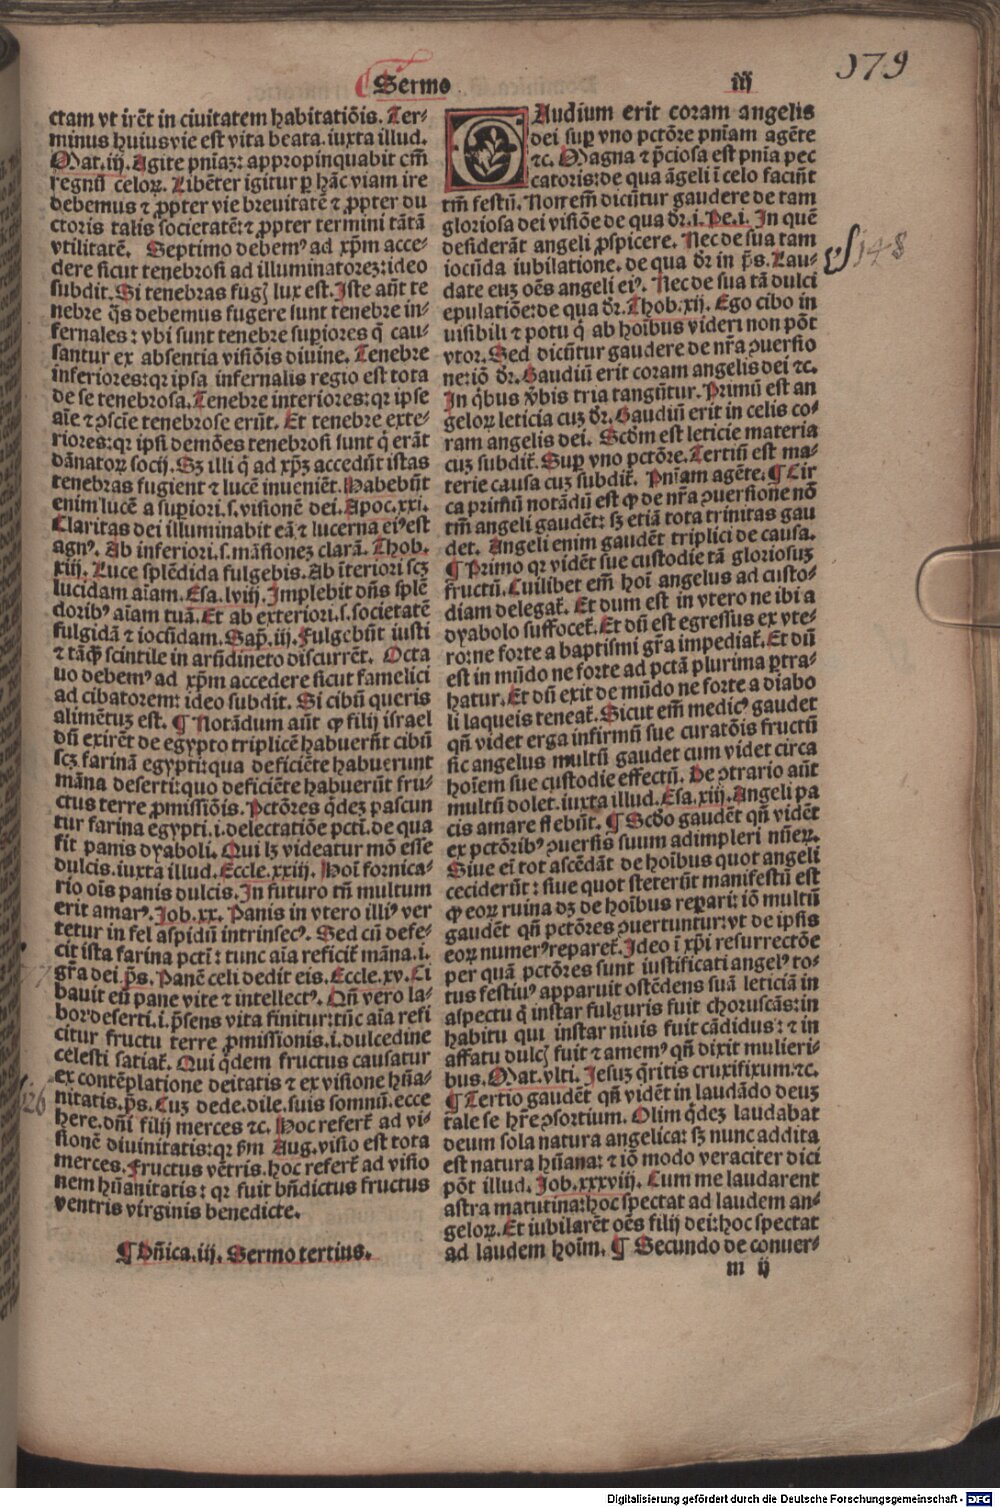 ¶ Sermo iij 179
ctam vt irēt in ciuitatem habitatiōis. Ter-
minus huius vie est vita beata. iuxta illud.
Mat. iij. Agite pn̄iaꝫ: appropinquabit em̄
regnū celoꝝ. Libēter igitur ꝑ hāc viam ire
debemus ⁊ ꝓpter vie breuitatē ⁊ ꝓpter du
ctoris talis societatē: ⁊ ꝓpter termini tātā
vtilitatē. Septimo debemꝰ ad xp̄m acce-
dere sicut tenebrosi ad illuminatoreꝫ: ideo
subdit. Si tenebras fugꝭ lux est. Iste aūt te
nebre q̄s debemus fugere sunt tenebre in-
fernales: vbi sunt tenebre supiores q̄ cau-
santur ex absentia visiōis diuine. Tenebre
inferiores: qꝛ ipsa infernalis regio est tota
de se tenebrosa. Tenebre interiores: qꝛ ipse
aīe ⁊ ꝯscīe tenebrose erūt. Et tenebre exte-
riores: qꝛ ipsi demōes tenebrosi sunt q̄ erāt
dānatoꝝ socij. Sꝫ illi q̄ ad xp̄ꝫ accedūt istas
tenebras fugient ⁊ lucē inueniēt. Habebūt
enim lucē a supiori. s. visionē dei. Apoc. xxi.
Claritas dei illuminabit eā ⁊ lucerna eiꝰ est
agnꝰ. Ab inferiori. s. māsioneꝫ clarā. Thob.
xiij. Luce splēdida fulgebis. Ab īteriori scꝫ
lucidam aīam. Esa. lviij. Implebit dn̄s splē
doribꝰ aīam tuā. Et ab exteriori. s. societatē
fulgidā ⁊ iocūdam. Sap̄. iij. Fulgebūt iusti
⁊ tāqꝫ scintile in arūdineto discurrēt. Octa
uo debemꝰ ad xp̄m accedere sicut famelici
ad cibatorem: ideo subdit. Si cibū queris
alimētuꝫ est. ¶ Notādum aūt ꝙ filij israel
dū exirēt de egypto triplicē habuerūt cibū
scꝫ farinā egypti: qua deficiēte habuerunt
māna deserti: quo deficiēte habuerūt fru-
ctus terre ꝓmissiōis. Pctōres q̄deꝫ pascun
tur farina egypti. i. delectatiōe pcti. de qua
fit panis dyaboli. Qui lꝫ videatur mō esse
dulcis. iuxta illud. Eccle. xxiij. Hoī fornica-
rio oīs panis dulcis. In futuro tn̄ multum
erit amarꝰ. Iob. xx. Panis in vtero illiꝰ ver
tetur in fel aspidū intrinsecꝰ. Sed cū defe-
cit ista farina pcti: tunc aīa reficit̄ māna. i.
gr̄a dei. p̄s. Panē celi dedit eis. Eccle. xv. Ci
bauit eū pane vite ⁊ intellectꝰ. Qn̄ vero la-
bor deserti. i. p̄sens vita finitur: tūc aīa refi
citur fructu terre ꝓmissionis. i. dulcedine
celesti satiat̄. Qui q̄dem fructus causatur
ex contēplatione deitatis ⁊ ex visione hūa-
nitatis. p̄s. Cuꝫ dede. dile. suis somnū. ecce
here. dn̄i filij merces ⁊c. Hoc refert̄ ad vi-
sionē diuinitatis: qꝛ fm̄ Aug. visio est tota
merces. Fructus vētris. hoc refert̄ ad visio
nem hūanitatis: qꝛ fuit bn̄dictus fructus
ventris virginis benedicte.
¶ Dn̄ica. iij. Sermo tertius.
GAudium erit coram angelis
dei suꝑ vno pctōre pn̄iam agēte
⁊c. Magna ⁊ p̄ciosa est pn̄ia pec
catoris: de qua āgeli ī celo faciūt
tm̄ festū. Non em̄ dicūtur gaudere de tam
gloriosa dei visiōe de qua dr̄. i. Pe. i. In quē
desiderāt angeli ꝓspicere. Nec de sua tam
iocūda iubilatione. de qua dr̄ in p̄s. Lau-
date euꝫ oēs angeli eiꝰ. Nec de sua tā dulci
epulatiōe: de qua dr̄. Thob. xij. Ego cibo in
uisibili ⁊ potu q̄ ab hoībus videri non pōt
vtor. Sed dicūtur gaudere de nr̄a ꝯuersio
ne: iō dr̄. Gaudiū erit coram angelis dei ⁊c.
In q̄bus v̄bis tria tangūtur. Primū est an
geloꝝ leticia cuꝫ dr̄. Gaudiū erit in celis co-
ram angelis dei. Scd̄m est leticie materia
cuꝫ subdit̄. Suꝑ vno pctōre. Tertiū est ma-
terie causa cuꝫ subdit̄. Pn̄iam agēte. ¶ Cir
ca primū notādū est ꝙ de nr̄a ꝯuersione nō
tm̄ angeli gaudēt: sꝫ etiā tota trinitas gau
det. Angeli enim gaudēt triplici de causa.
¶ Primo qꝛ vidēt sue custodie tā gloriosuꝫ
fructū. Cuilibet em̄ hoī angelus ad custo-
diam delegat̄. Et dum est in vtero ne ibi a
dyabolo suffocet̄. Et dū est egressus ex vte-
ro: ne forte a baptismi gr̄a impediat̄. Et dū
est in mūdo ne forte ad pctā plurima ꝑtra-
hatur. Et dū exit de mūdo ne forte a diabo
li laqueis teneat̄. Sicut em̄ medicꝰ gaudet
qn̄ videt erga infirmū sue curatōis fructū
sic angelus multū gaudet cum videt circa
hoīem sue custodie effectū. De ꝯtrario aūt
multū dolet. iuxta illud. Esa. xiij. Angeli pa
cis amare flebūt. ¶ Scd̄o gaudēt qn̄ vidēt
ex pctōribꝰ ꝯuersis suum adimpleri nūeꝝ.
Siue ei tot ascēdāt de hoībus quot angeli
ceciderūt: siue quot steterūt manifestū est
ꝙ eoꝝ ruina dꝫ de hoībus reꝑari: iō multū
gaudēt qn̄ pctōres ꝯuertuntur: vt de ipsis
eoꝝ numerꝰ reparet̄. Ideo ī xp̄i resurrectōe
per quā pctōres sunt iustificati angelꝰ to-
tus festiuꝰ apparuit ostēdens suā leticiā in
aspectu q̄ instar fulguris fuit choruscās: in
habitu qui instar niuis fuit cādidus: ⁊ in
affatu dulcꝭ fuit ⁊ amemꝰ qn̄ dixit mulieri-
bus. Mat. vlti. Iesuꝫ q̄ritis cruxifixum. ⁊c.
¶ Tertio gaudēt qn̄ vidēt in laudādo deuꝫ
tale se hr̄e ꝯsortium. Olim q̄deꝫ laudabat
deum sola natura angelica: sꝫ nunc addita
est natura hūana: ⁊ iō modo veraciter dici
pōt illud. Iob. xxxviij. Cum me laudarent
astra matutina: hoc spectat ad laudem an-
geloꝝ. Et iubilarēt oēs filij dei: hoc spectat
ad laudem hoīm. ¶ Secundo de conuer-
m ij
ps 148
Digitalisierung gefördert durch die Deutsche Forschungsgemeinschaft - DFG